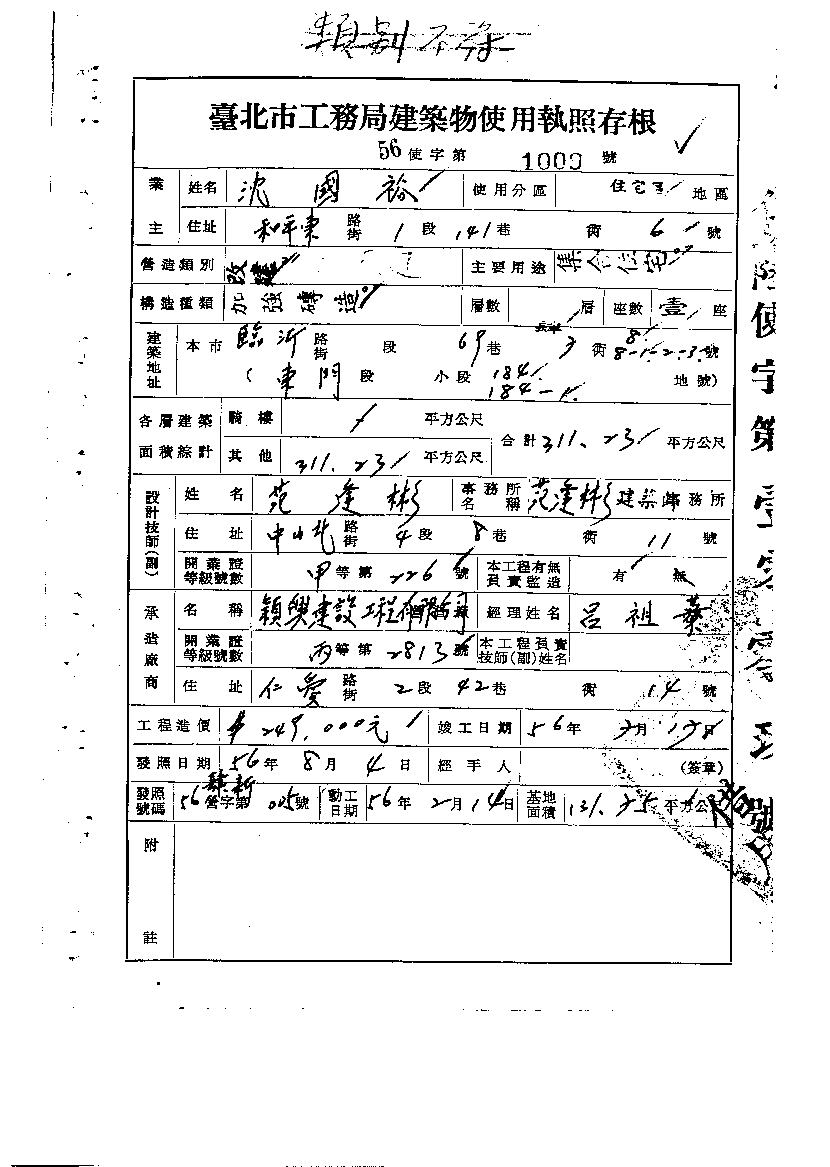 類別不符
臺北市工務局建築物使用執照存根
56使字第1000號
業主 姓名 沈國裕 使用分區 住宅 地區
住址 和平東 路街 1段 141巷 街 6號
營造類別 改建 主要用途 集合住宅
構造種類 加強磚造 層數 層 座數 壹座
建築地址 本市 臨沂 路街 段 69巷 3 街 8 8-1.-2.-3.號
(東門段 小段 184 184-1. 地號)
各層建築面積綜計 騎樓 平方公尺 合計 311.23 平方公尺
其他 311.23 平方公尺
設計技師(副) 姓名 范逢彬 事務所名稱 范逢彬建築師事務所
住址 中山北 路街 4段 8巷 街 11號
開業證等級號數 甲等第226號 本工程有無負責監造 有 無
承造廠商 名稱 穎興建設工程有限公司 經理姓名 呂祖華
開業證等級號數 丙等第2813號 本工程負責技師(副)姓名
住址 仁愛 路街 2段 42巷 街 14號
工程造價 $249,000元 竣工日期 56年 月 日
發照日期 56年8月4日 經手人 (簽章)
發照號碼 56營字第005號 動工日期 56年2月14日 基地面積 131.75平方公尺
附註
使字第壹 號